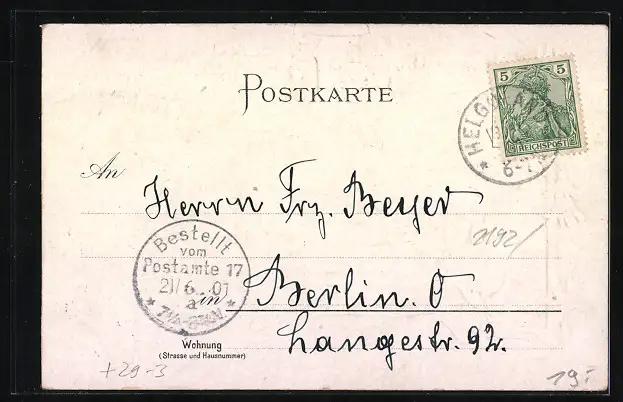 POSTKARTE
5 5
REICHSPOST
HELGOLAND
6-7
An
Herrn Frz. Beyer
2192/
Bestellt
vom
Postamte 17
21/6 01
a
in Berlin. O
Langestr. 92.
Wohnung
(Strasse und Hausnummer)
+29-3
19.-